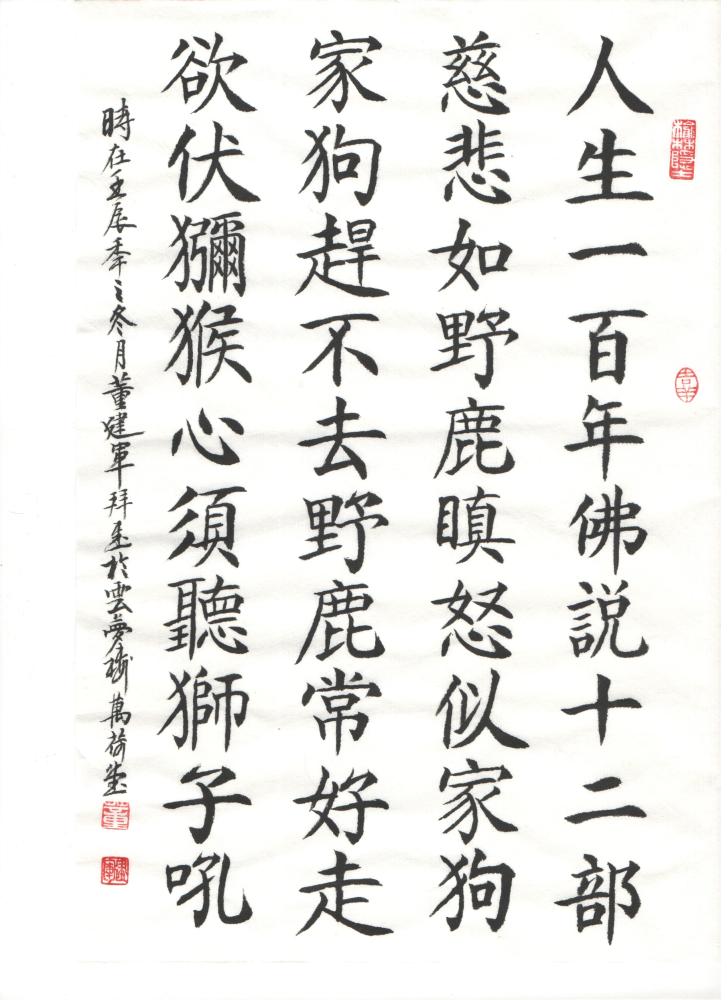 人生一百年佛説十二部
慈悲如野鹿瞋怒似家狗
家狗趕不去野鹿常好走
欲伏獼猴心須聽獅子吼
時在壬辰季之冬月董建軍拜書於雲夢樹萬荷堂